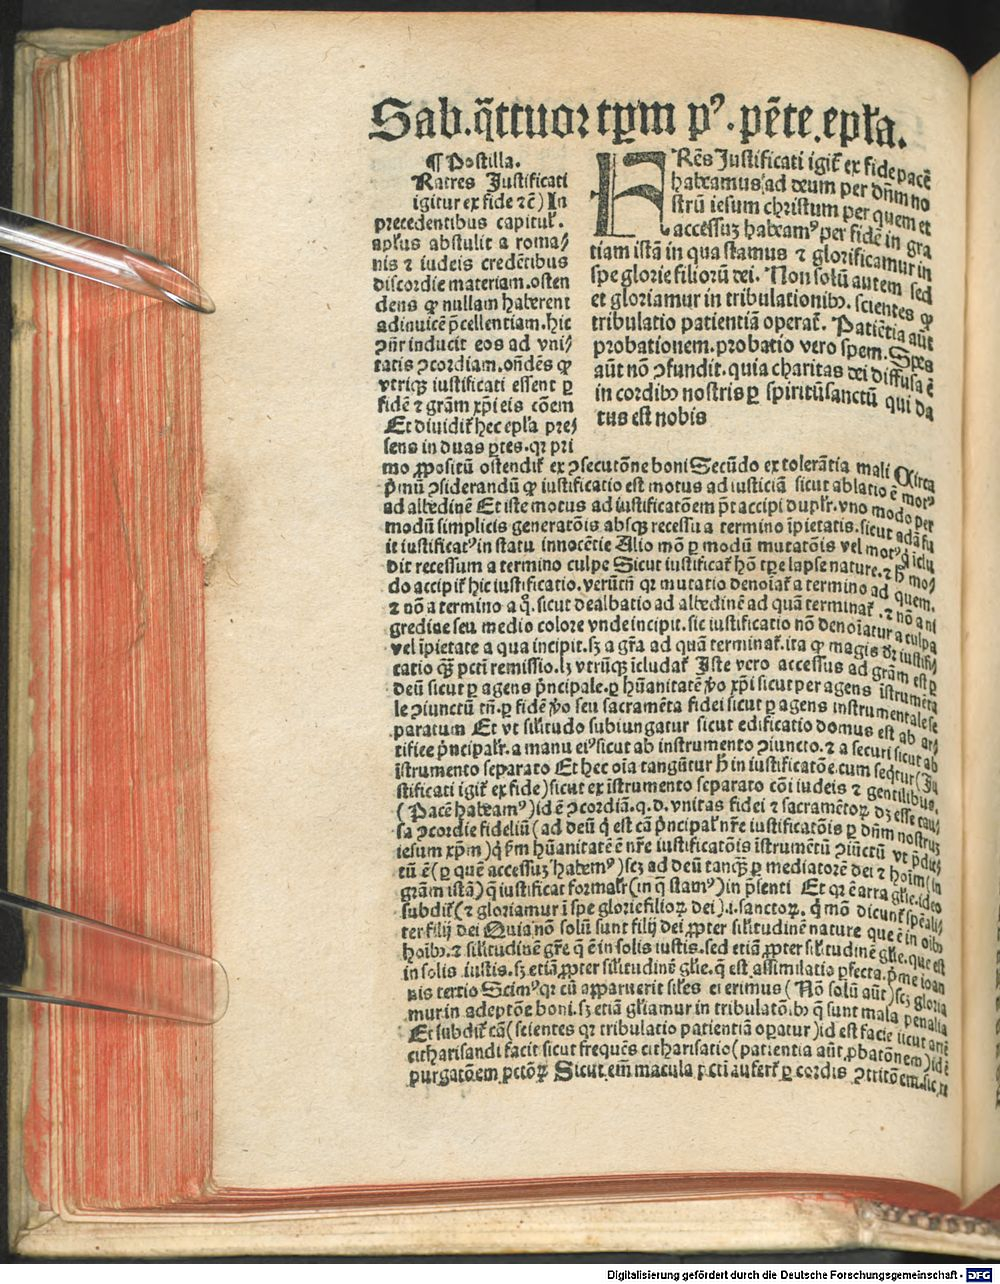 Sab. q̄ttuor tp̄m pꝰ. pēte. epl̓a.
¶ Postilla.
Ratres Justificati
igitur ex fide ⁊c̄) In
precedentibus capitul̓.
apl̓us abstulit a roma⸗
nis ⁊ iudeis credētibus
discordie materiam. osten
dens ꝙ nullam haberent
adinuicē p̄cellentiam. hic
ꝯn̄r inducit eos ad vni⸗
tatis ꝯcordiam. ondēs ꝙ
vtriqꝫ iustificati essent ꝑ
fidē ⁊ grām xp̄i eis cōem
Et diuidit̓ hec epl̓a pre⸗
sens in duas ꝑtes. qꝛ pri
FRēs Justificati igit̓ ex fide pacē
habeamus ad deum per dn̄m no
strū iesum christum per quem et
accessuꝫ habeamꝰ per fidē in gra
tiam istā in qua stamus ⁊ glorificamur in
spe glorie filiorū dei. Non solū autem sed
et gloriamur in tribulationibꝰ. scientes ꝙ
tribulatio patientiā operat̓. Patiētia aūt
probationem. probatio vero spem. Spes
aūt nō ꝯfundit. quia charitas dei diffusa ē
in cordibꝰ nostris ꝑ spiritūsanctū qui da
tus est nobis
mo ꝓpositū ostendit̓ ex ꝯsecutōne boni Secūdo ex tolerātia mali Circa
p̄mū ꝯsiderandū ꝙ iustificatio est motus ad iusticiā sicut ablatio ē motꝰ
ad albedinē Et iste motus ad iustificatōem pōt accipi dupl̓r. vno modo per
modū simplicis generatōis absqꝫ recessu a termino īpietatis. sicut adā fu
it iustificatꝰ in statu innocētie Alio mō ꝑ modū mutatōis vel motꝰ q̓ īclu
dit recessum a termino culpe Sicut iustificat̓ hō tꝑe lapse nature. ⁊ h̓ mo⸗
do accipit̓ hic iustificatio. verūtn̄ qꝛ mutatio denoīat̓ a termino ad quem.
⁊ nō a termino a q̊. sicut dealbatio ad albedinē ad quā terminat̓. ⁊ nō a ni
gredine seu medio colore vnde incipit. sic iustificatio nō denoīatur a culpa
vel īpietate a qua incipit. sꝫ a gr̄a ad quā terminat̓. ita ꝙ magis dr̄ iustifi⸗
catio qꝫ pcti remissio. lꝫ vtrūqꝫ īcludat̓ Iste vero accessus ad grām est ꝑ
deū sicut ꝑ agens p̄ncipale. ꝑ hūanitatē ꝟo xp̄i sicut per agens īstrumēta
le ꝯiunctū tn̄. ꝑ fidē ꝟo seu sacramēta fidei sicut ꝑ agens instrumentale se
paratum Et vt sil̓itudo subiungatur sicut edificatio domus est ab ar⸗
tifice p̄ncipal̓r. a manu eiꝰ sicut ab instrumento ꝯiuncto. ⁊ a securi sicut ab
īstrumento separato Et hec oīa tangūtur h̓ in iustificatōe. cum seqt̄ur (Ju
stificati igit̓ ex fide) sicut ex īstrumento separato cōi iudeis ⁊ gentilibus.
(Pacē habeamꝰ) id ē ꝯcordiā. q. d. vnitas fidei ⁊ sacramētoꝝ dꝫ esse cau⸗
sa ꝯcordie fideliū (ad deū q̓ est cā p̄ncipal̓ nr̄e iustificatōis ꝑ dn̄m nostruꝫ
iesum xp̄m) q̓ p̄m hūanitatē ē nr̄e iustificatōis īstrumētū ꝯiūctū vt p̄dic⸗
tū ē (ꝑ quē accessuꝫ habemꝰ) scꝫ ad deū tanqꝫ ꝑ mediatorē dei ⁊ hoīm (in
grām istā) q̄ iustificat formal̓r (in q̄ stamꝰ) in p̄senti Et qꝛ ē arra gl̓ie. ideo
subdit̓ (⁊ gloriamur ī spe glorie filioꝝ dei). i. sanctoꝝ. q̓ mō dicunt̓ spēali⸗
ter filij dei Quia nō solū sunt filij dei ꝓpter sil̓itudinē nature que ē in oībꝰ
hoībꝰ. ⁊ sil̓itudinē gr̄e q̄ ē in solis iustis. sed etiā ꝓpter sil̓itudinē gl̓ie. que est
in solis iustis. sꝫ etiā ꝓpter sil̓itudinē gl̓ie. q̄ est assimilatio ꝑfecta. p̄me ioan
nis tertio Scimꝰ qꝛ cū apparuerit sil̓es ei erimus (Nō solū aūt) scꝫ gloria
mur in adeptōe boni. sꝫ etiā gl̓iamur in tribulatōibꝰ q̄ sunt mala penalia
Et subdit̓ cā (scientes qꝛ tribulatio patientiā oꝑatur) id est facit sicut artē
citharisandi facit sicut frequēs citharisatio (patientia aūt ꝓbatōnem) id ē
purgatōem pctōꝝ Sicut em̄ macula pcti aufert̓ ꝑ cordis ꝯtritōem. sic ex
Digitalisierung gefördert durch die Deutsche Forschungsgemeinschaft - DFG